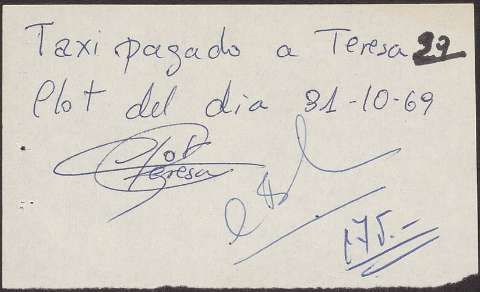 Taxi pagado a Teresa 27
Plot del dia 31-10-69
Plot
Teresa
175.-